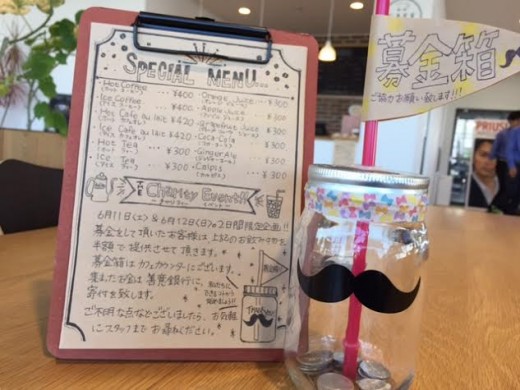 SPECIAL MENU
・Hot Coffee ... ¥400
・Ice Coffee ... ¥400
・Hot Cafe au lait ¥420
・Ice Cafe au lait ¥420
・Hot Tea ... ¥300
・Ice Tea ... ¥300
・Orange Juice ... ¥300
・Apple Juice ... ¥300
・Grapefruit Juice ¥300
・Coca-Cola ... ¥300
・Ginger Ale ... ¥300
・Calpis ... ¥300
The Charity Event!!
チャリティー イベント
6月11日(土)&6月12日(日)の2日間限定企画!!
募金をして頂いたお客様は上記のお飲み物を
半額で提供させて頂きます。
募金箱はカフェカウンターにございます。
集まったお金は善意銀行に、
寄付を致します。
ご不明な点などございましたら、お気軽
にスタッフまでお尋ねください。
Thank you
募金箱
ご協力お願い致します!!!
PRIUS